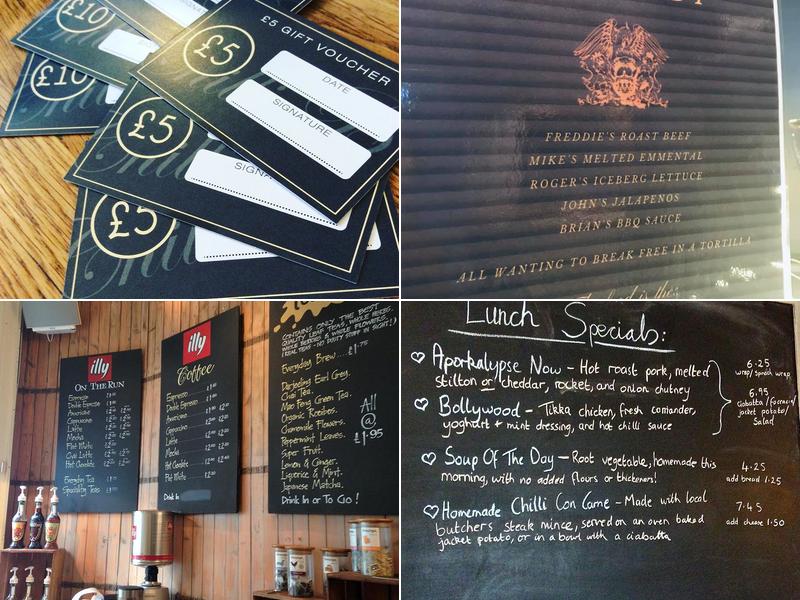 £10
£10
£5 GIFT VOUCHER
£5
DATE
SIGNATURE
£5
£5
FREDDIE'S ROAST BEEF
MIKE'S MELTED EMMENTAL
ROGER'S ICEBERG LETTUCE
JOHN'S JALAPENOS
BRIAN'S BBQ SAUCE
ALL WANTING TO BREAK FREE IN A TORTILLA
illy
ON THE RUN
Espresso
Double Espresso
Americano
Cappuccino
Latte
Mocha
Flat White
Chai Latte
Hot Chocolate
Everyday Tea
Speciality Teas
illy
Coffee
Espresso
Double Espresso
Americano
Cappuccino
Latte
Mocha
Flat White
Hot Chocolate
Drink In
CONTAINS ONLY THE BEST
QUALITY LEAF TEAS, WHOLE HERBS,
WHOLE BERRIES & WHOLE FLOWERS.
(REAL TEAS - NO DUSTY STUFF IN SIGHT!)
Everyday Brew....£1.75
Darjeeling Earl Grey.
Chai Tea.
Mao Feng Green Tea.
Organic Rooibos.
Chamomile Flowers.
Peppermint Leaves.
Super Fruit.
Lemon & Ginger.
Liquorice & Mint.
Japanese Matcha.
All
@
£1.95
Drink In or To Go!
Lunch Specials:
Aporkalypse Now - Hot roast pork, melted
stilton or cheddar, rocket, and onion chutney
6.25
6.95
jacket potato/
Salad
Bollywood - Tikka chicken, fresh coriander,
yoghurt + mint dressing, and hot chilli sauce
Soup Of The Day - Root vegetable, homemade this
morning, with no added flours or thickeners!
4.25
add bread 1.25
Homemade Chilli Con Carne - Made with local
butchers steak mince, served on an oven baked
jacket potato, or in a bowl with a ciabatta
7.45
add cheese 1.50